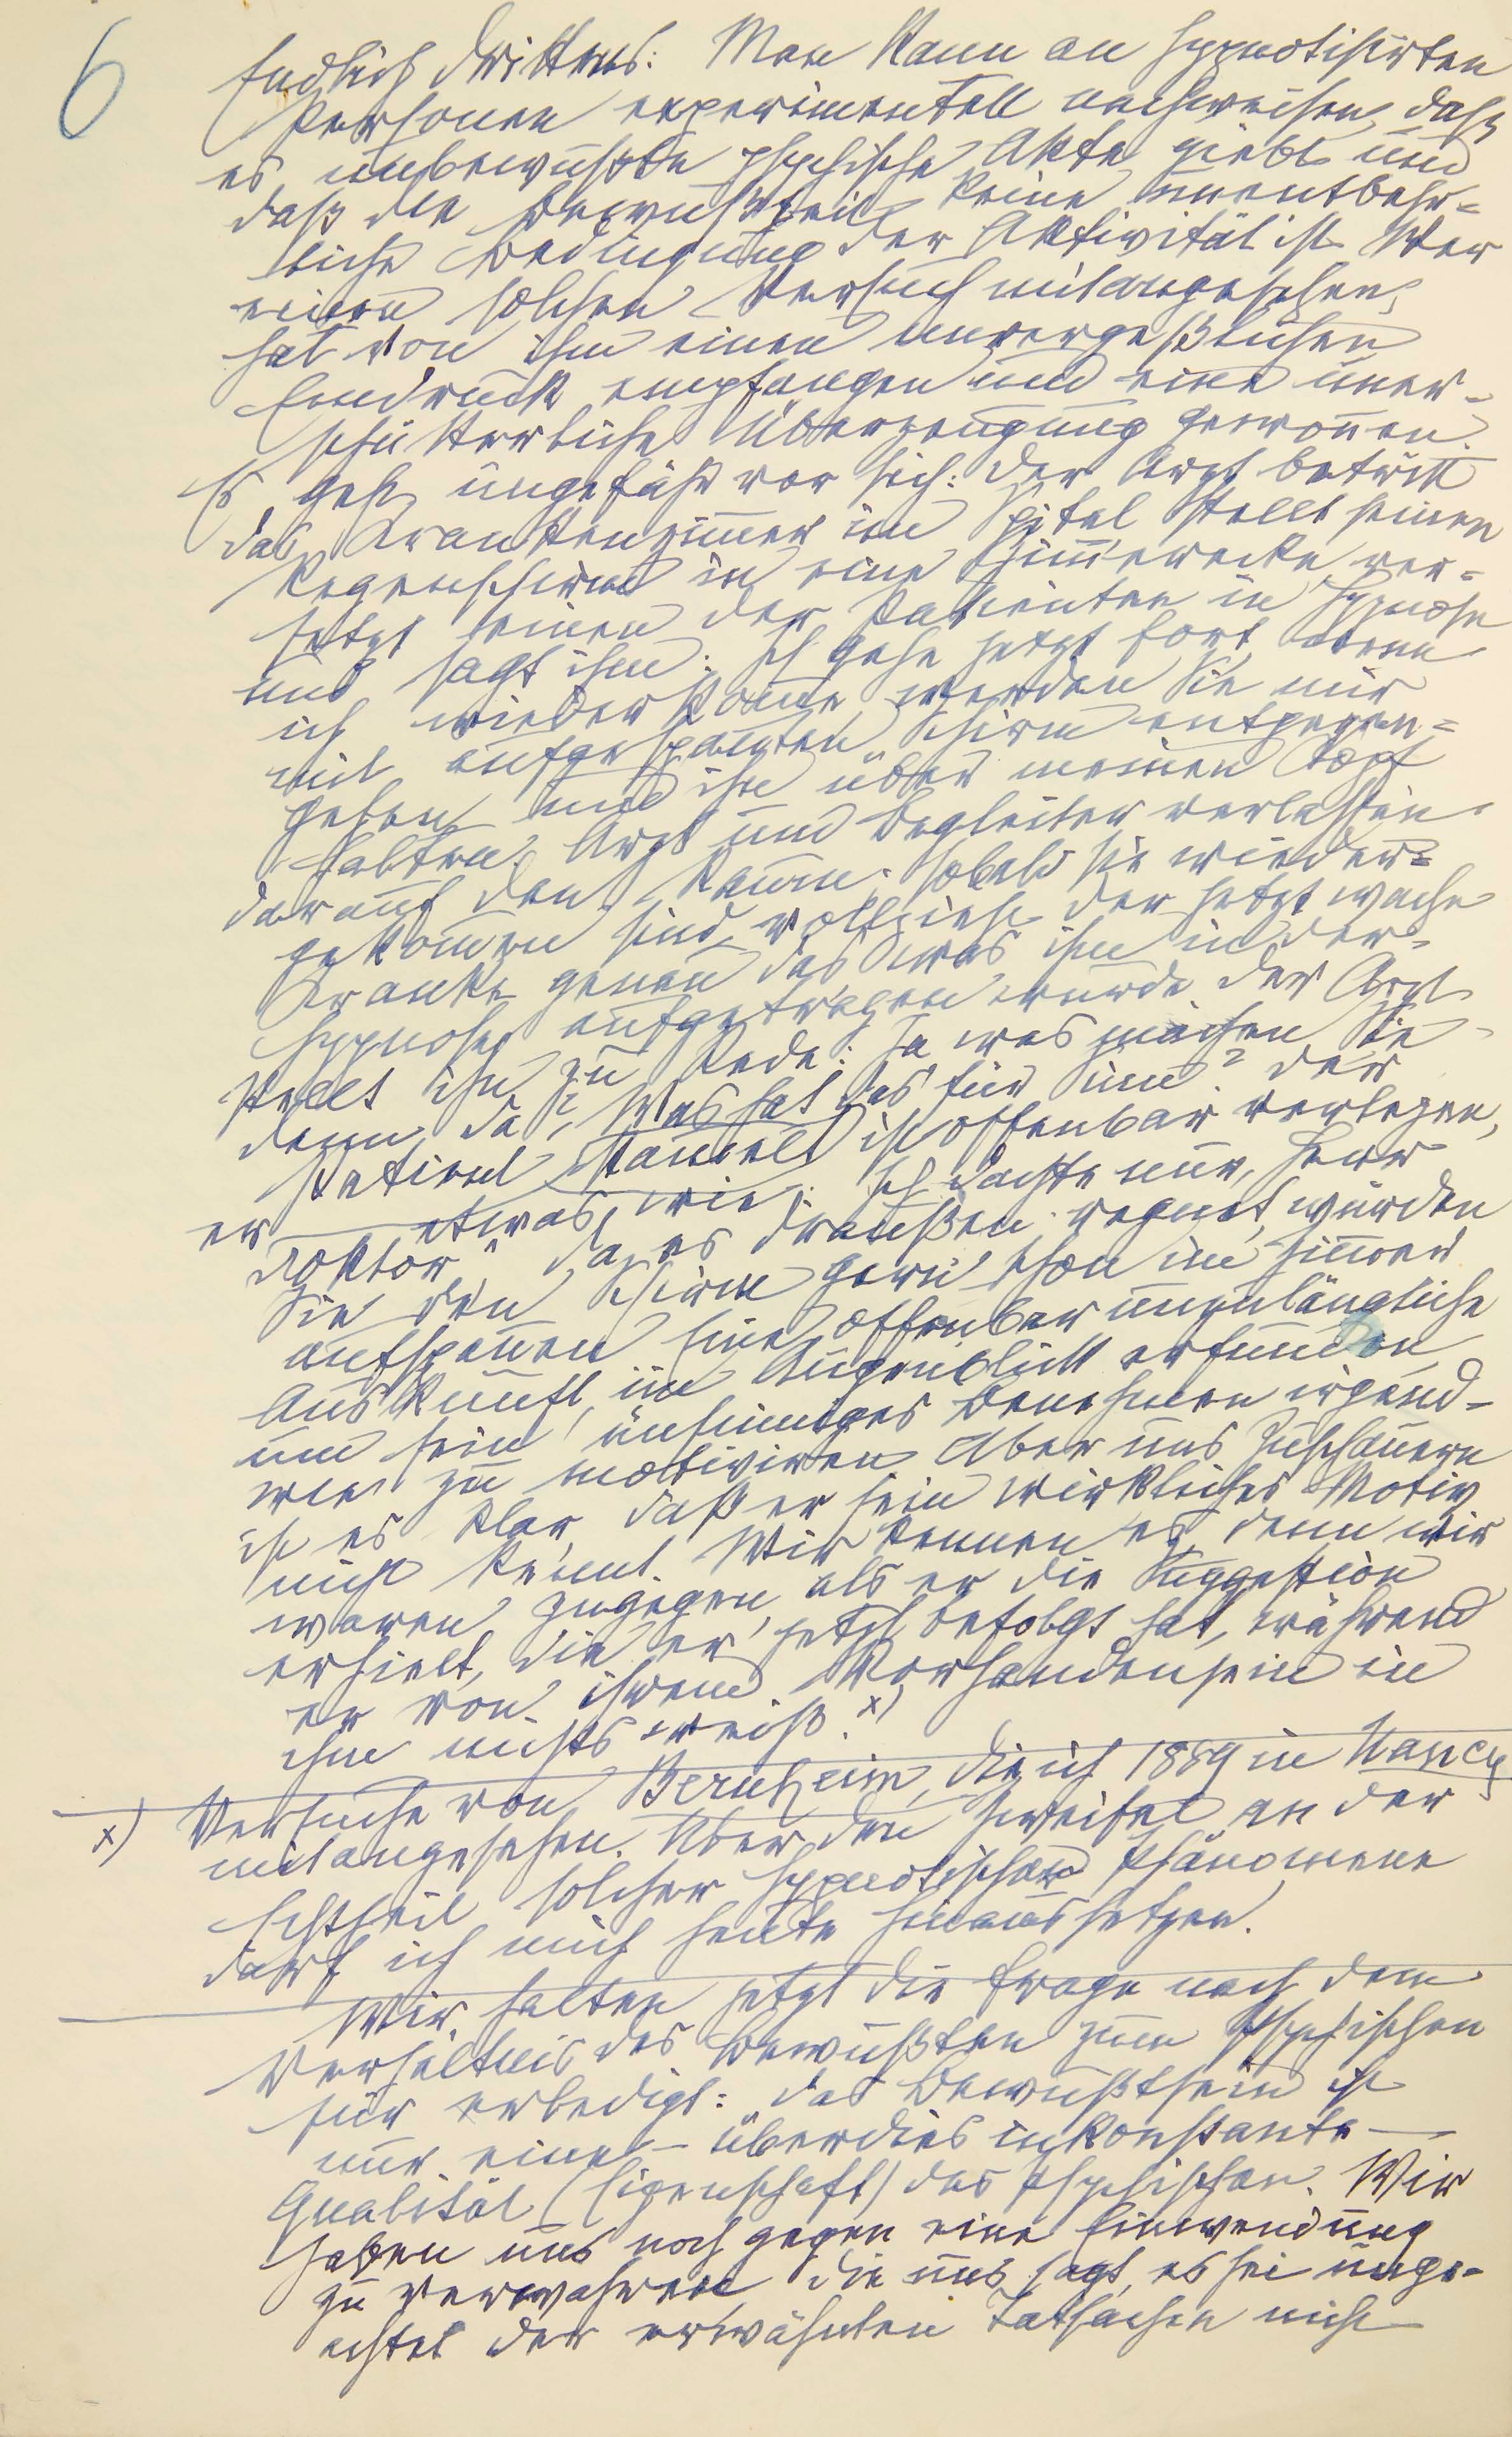 6
Endlich drittens: Man kann an hypnotisirten
Personen experimentell nachweisen, daß
es unbewußte psychische Akte giebt und
daß die Bewußtheit keine unentbehr=
liche Bedingung der Aktivität ist. Wer
einen solchen Versuch mitangesehen,
hat von ihm einen unvergeßlichen
Eindruck empfangen und eine uner-
schütterliche Überzeugung gewonnen.
Es geht ungefähr vor sich: Der Arzt betritt
das Krankenzimmer im Spital stellt seinen
Regenschirm in eine Zimmerecke, ver=
setzt einen der Patienten in Hypnose
und sagt ihm: Ich gehe jetzt fort, wenn
ich wieder komme, werden Sie mir
mit aufgespannten Schirm entgegen=
gehen und ihn über meinen Kopf
halten. Arzt und Begleiter verlassen
darauf den Raum. Sobald sie wieder=
gekommen sind, vollzieht der jetzt wache
Kranke genau das was ihm in der
Hypnose aufgetragen wurde. Der Arzt
stellt ihn zu Rede: Ja was machen Sie
denn da? Was hat das für Sinn? Der
Patient ist offenbar verlegen,
er stammelt etwas, wie: Ich dachte nur, Herr
Doktor, da es draußen regnet, würden
Sie den Schirm gern schon im Zimmer
aufspannen. Eine offenbar unzulängliche
Auskunft, im Augenblick erfunden
um sein unsinniges Benehmen irgend-
wie zu motiviren. Aber uns Zuschauern
ist es klar, daß er sein wirkliches Motiv
nicht kennt. Wir kennen es, denn wir
waren zugegen, als er die Suggestion
erhielt, die er jetzt befolgt hat, während
er von ihrem Vorhandensein in
ihm nichts weiß. x)
x) Versuche von Bernheim, die ich 1889 in Nancy
mitangesehen. Über den Zweifel an der
Echtheit solcher hypnotischen Phänomene
darf ich mich heute hinaussetzen.
Wir halten jetzt die Frage nach dem
Verhältnis des Bewußten zum Psychischen
für erledigt: das Bewußtsein ist
nur eine – überdies inkonstante –
Qualität (Eigenschaft) des Psychischen. Wir
haben uns noch gegen eine Einwendung
zu verwahren die uns sagt, es sei unge-
achtet der erwähnten Tatsachen nicht